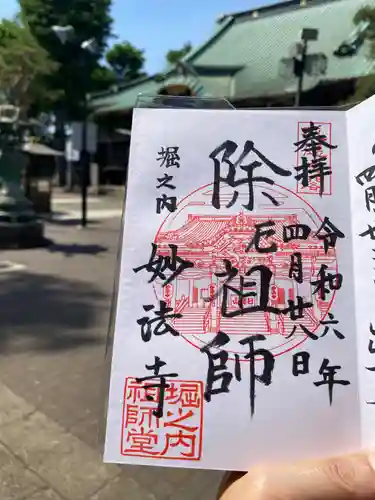 奉拝
令和六年
四月廿八日
除厄祖師
堀之内
妙法寺
堀之内
祖師堂